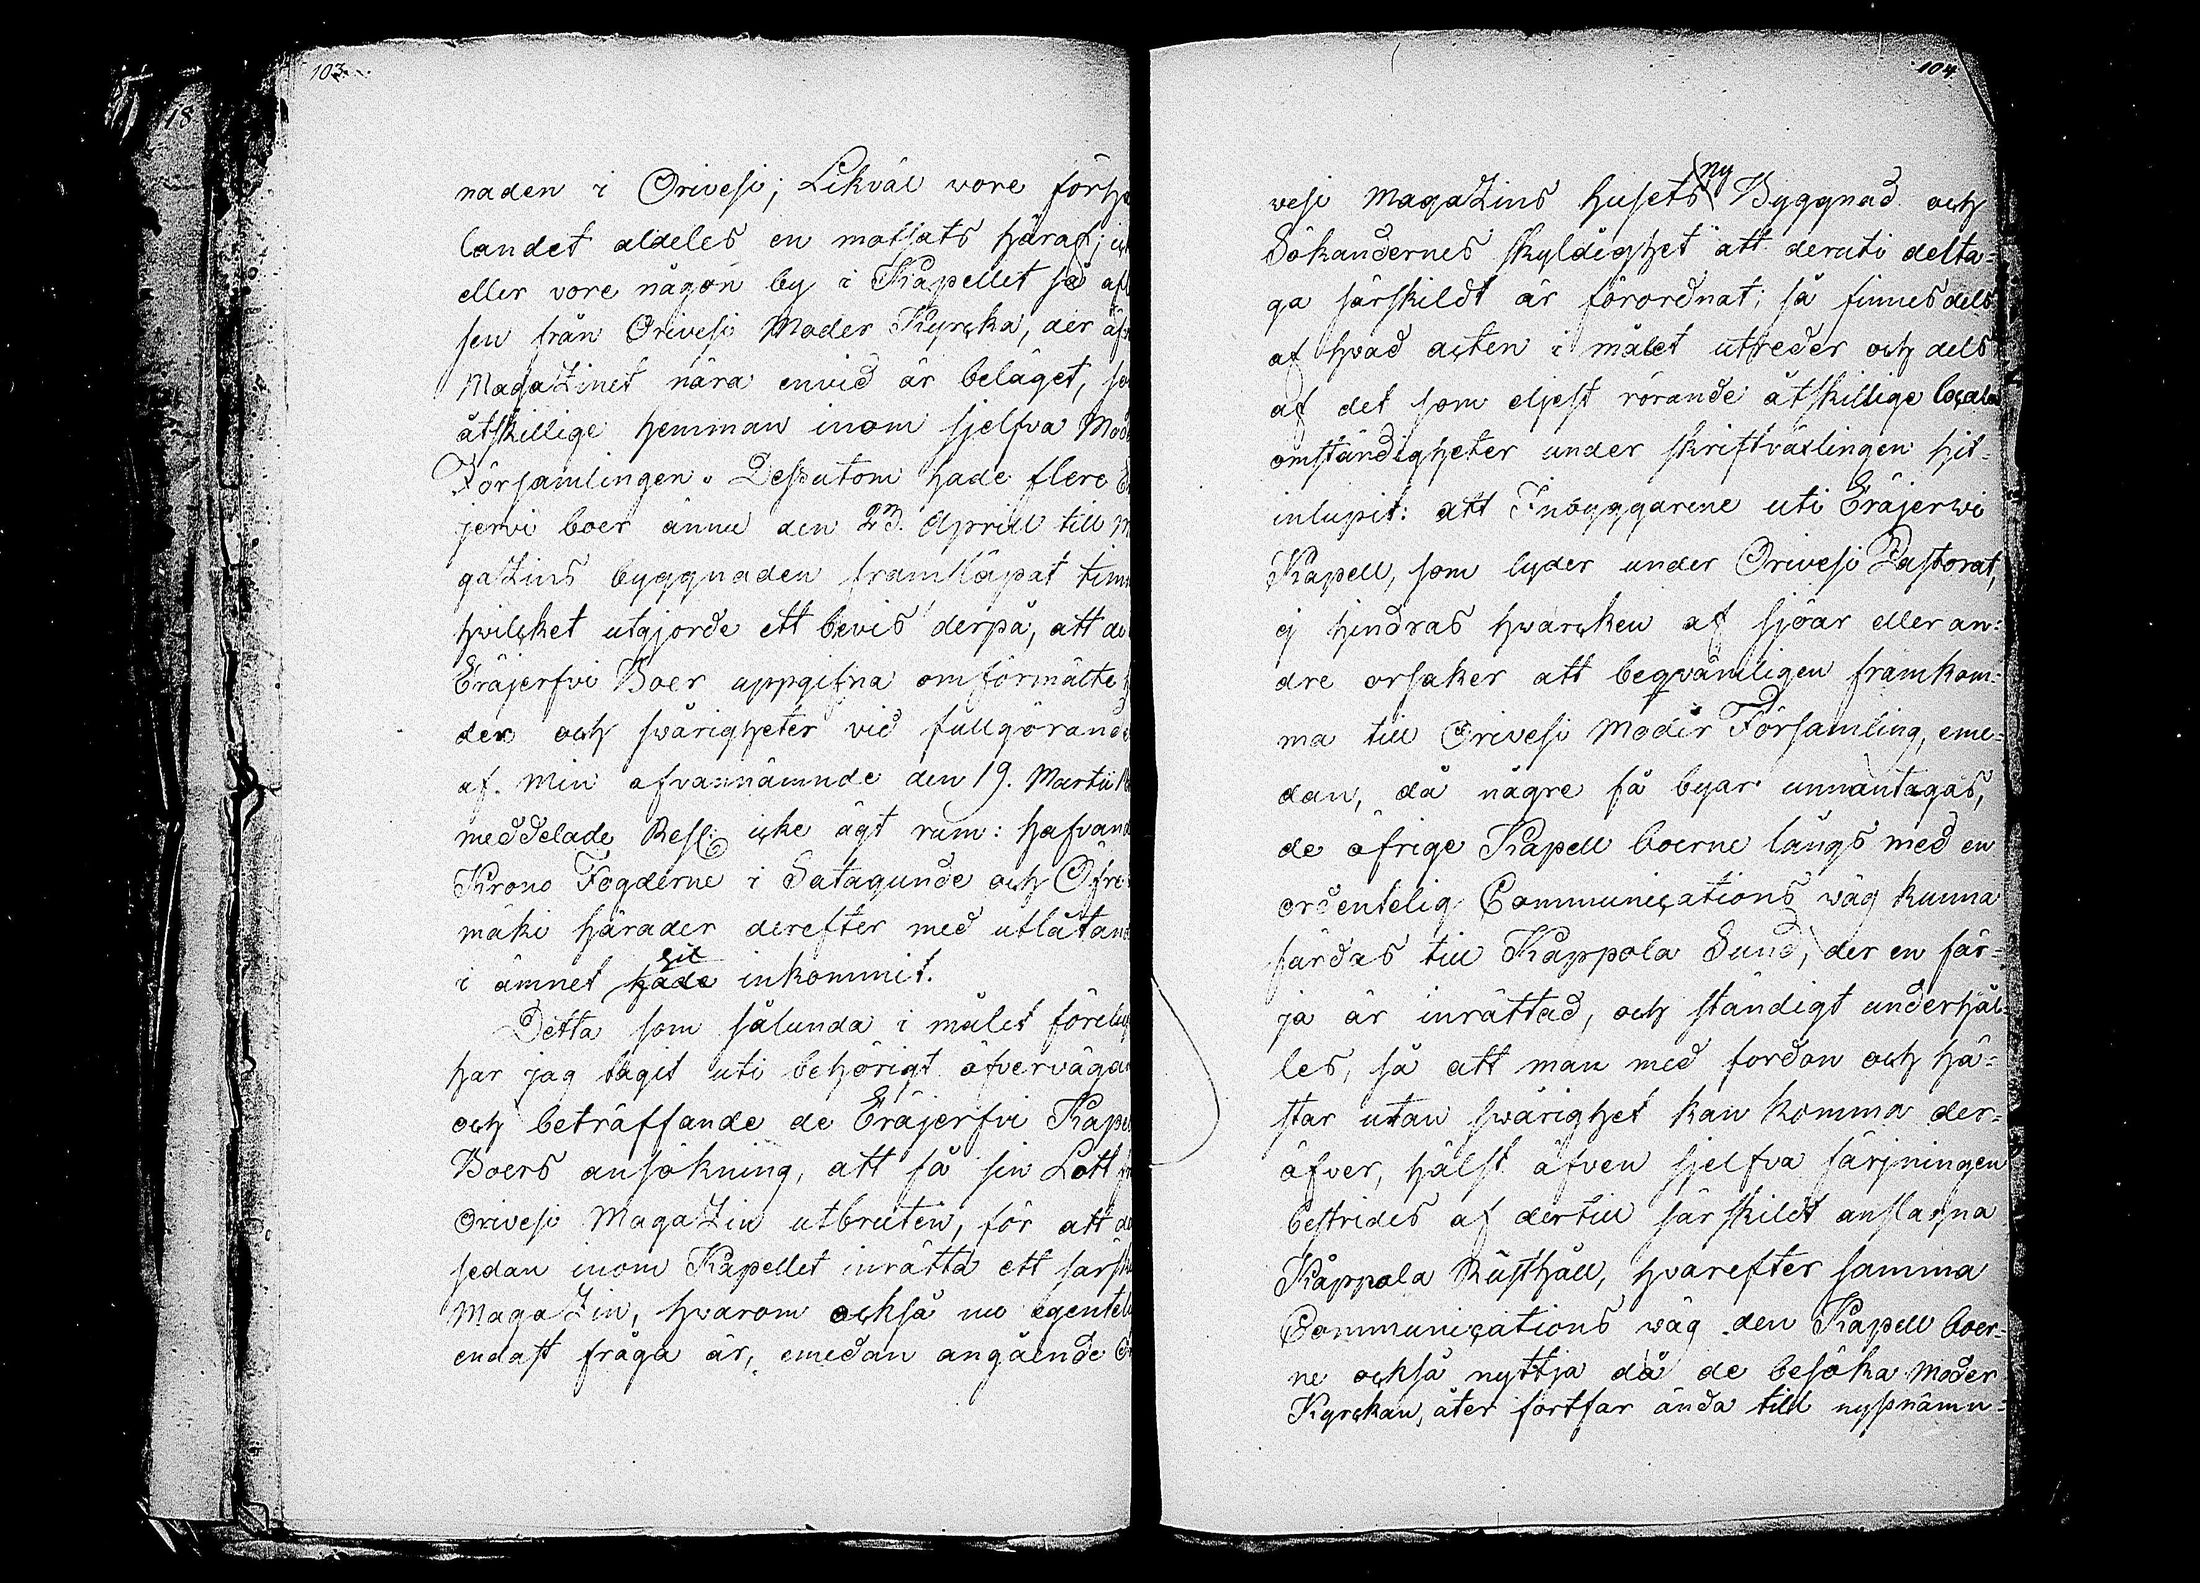 103.
18
naden i Orivesi; Likväl vore förhå
landet aldeles en motsats häraf; ick
eller vore någon by i Kapellet så afl
sen från Orivesi Moder Kyrcka, der äf
MagaZinet nära envid är beläget, so
åtskillige hemman inom sjelfva Mod
Församlingen. Dessutom hade flere E
jervi boer ännu den 23. Aprill till M
gaZins byggnaden framsläpat tim
hvilcket utgjorde ett bevis derpå, att de
Eräjerfvi Boer uppgifna omförmälte h
der och svårigheter vid fullgörande
af Min ofvannämnde den 19. Martii
meddelade Resl: icke ägt rum: hafvand
Krono Fogderne i Satagunde och Öfre
mäki härader derefter med utlåtan
i ämnet hit inkommit.
Detta som sålunda i målet förelup
har jag tagit uti behörigt öfverväga
och beträffande de Eräjerfvi Kape
Boers ansökning, att få sin Lott
Orivesi MagaZin utbruten, för att de
sedan inom Kapellet inrätta ett särsk
MagaZin, hvarom också nu egentel
endast fråga är, emedan angående O
104
vesi MagaZins husets ny Byggnad och
Sökandernes skyldighet att deruti delta=
ga särskildt är förordnat; så finnes dels
af hvad acten i målet utreder och dels
af det som eljest rörande åtskillige locala
omständigheter under skriftväxlingen hit=
inlupit: att Inbyggarene uti Eräjerwi
Kapell, som lyder under Orivesi Pastorat,
ej hindras hwarcken af sjöar eller an=
dre orsaker att beqvämligen framkom=
ma till Orivesi Moder Församling, eme=
dan, då någre få byar unnantagas,
de öfrige Kapell boerne längs med en
ordentelig Communications wäg kunna
färdas till Kappola Sund, der en fär=
ja är inrättad, och ständigt underhål=
les, så att man med fordon och hä=
star utan swårighet kan komma der=
öfver, hälst äfven sjelfva färjningen
bestrides af dertill särskildt anslagna
Kåppola Rusthåll, hvarefter samma
Communications wäg den Kapell boer=
ne också nyttja då de besöka Moder
Kyrckan, åter fortfar ända till nyssnämn=